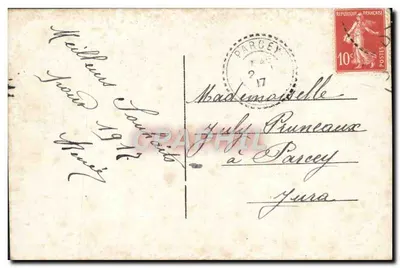 Meilleurs Souhaits
pour 1917
PARCEY
2
17
REPUBLIQUE FRANCAISE
10c
POSTES
Mademoiselle
July Pruneaux
à Parcey
Jura